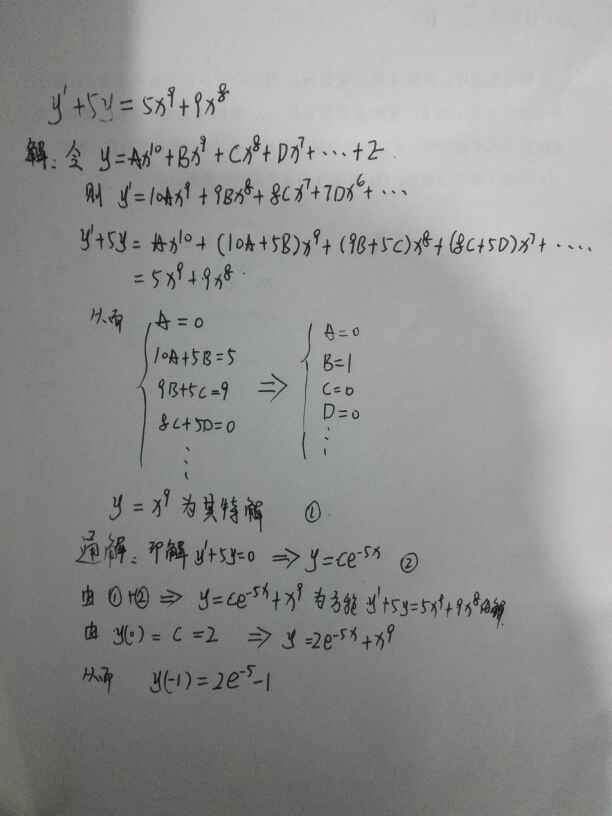 y'+5y=5x⁹+9x⁸
解:令 y=Ax¹⁰+Bx⁹+Cx⁸+Dx⁷+⋯+Z.
则 y'=10Ax⁹+9Bx⁸+8Cx⁷+7Dx⁶+⋯
y'+5y=Ax¹⁰+(10A+5B)x⁹+(9B+5C)x⁸+(8C+5D)x⁷+⋯.
=5x⁹+9x⁸.
从而 { A=0 { A=0
10A+5B=5 B=1
9B+5C=9 ⇒ C=0
8C+5D=0 D=0
⋮ ⋮
y=x⁹ 为其特解 ①
通解:即解 y'+5y=0 ⇒ y=ce⁻⁵ˣ ②
由①+② ⇒ y=ce⁻⁵ˣ+x⁹ 为方程 y'+5y=5x⁹+9x⁸的解
由 y(0)=C=2 ⇒ y=2e⁻⁵ˣ+x⁹
从而 y(-1)=2e⁻⁵-1